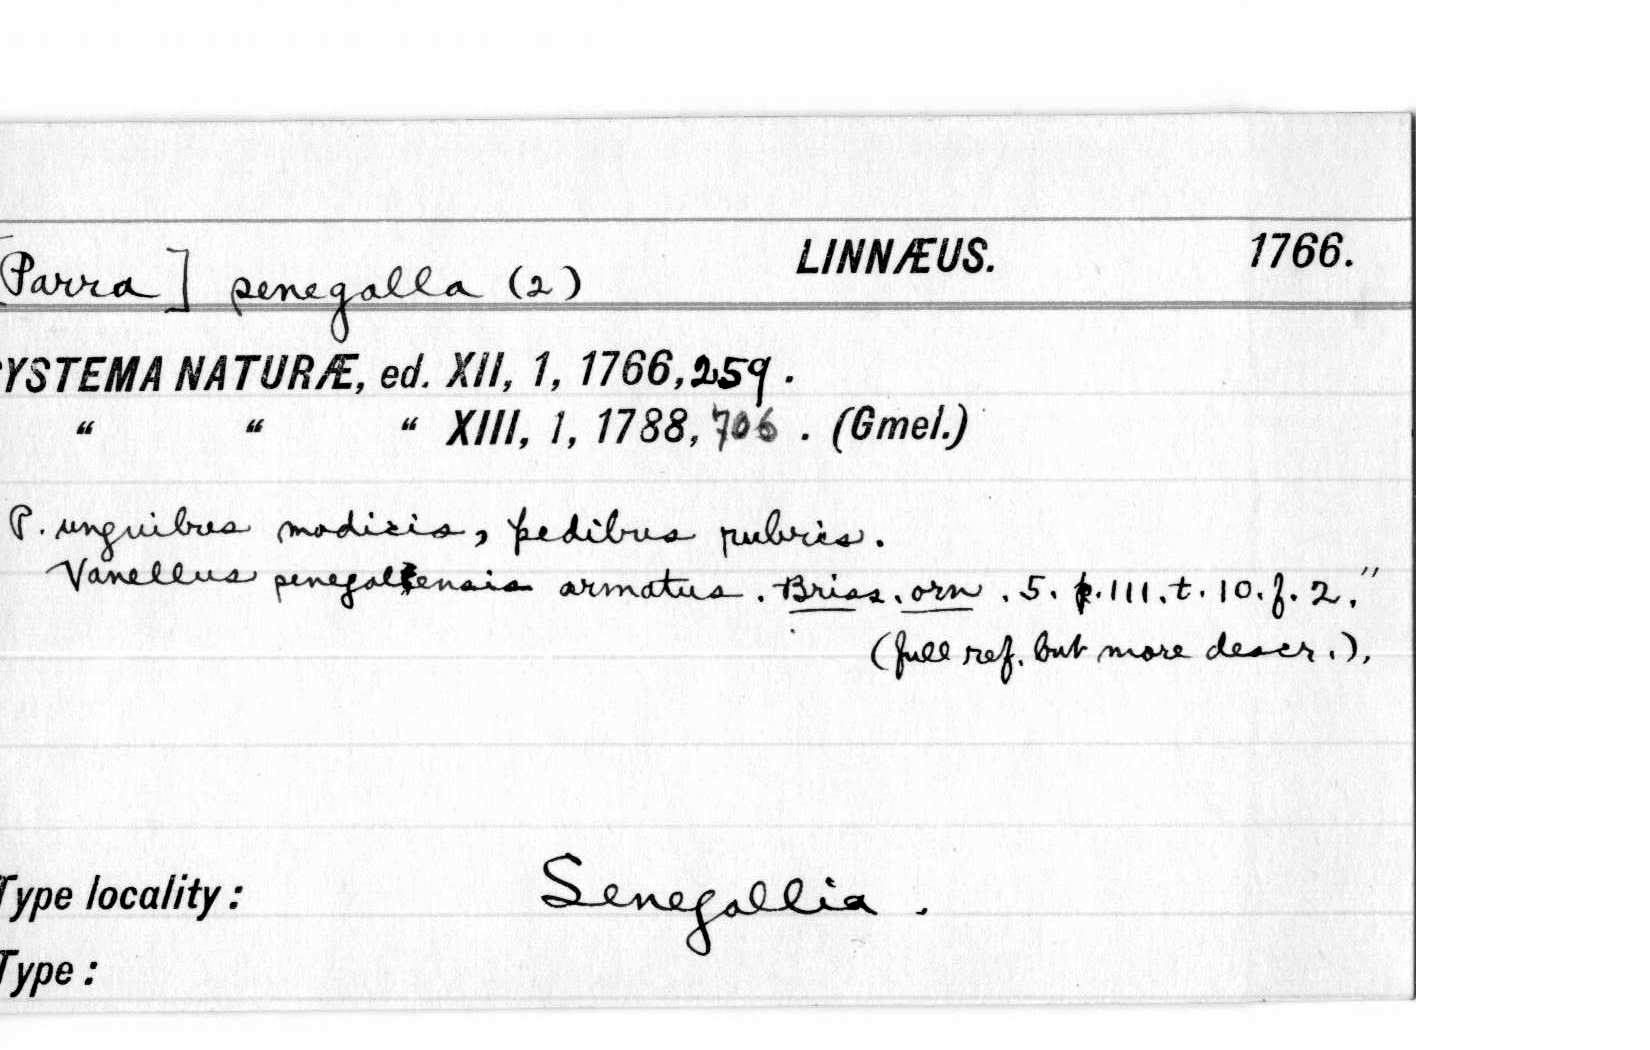 [Parra] senegalla (2) LINNÆUS. 1766.
SYSTEMA NATURÆ, ed. XII, 1, 1766, 259.
“ “ “ XIII, 1, 1788, 706. (Gmel.)
P. unguibus modicis, pedibus rubris.
Vanellus senegalensis armatus. Briss. orn. 5. p. 111. t. 10. f. 2."
(full ref. but more descr.).
Type locality: Senegallia.
Type: